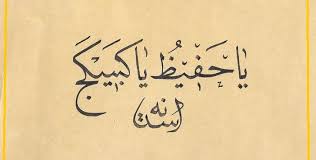 يا حفيظ يا كبيكج